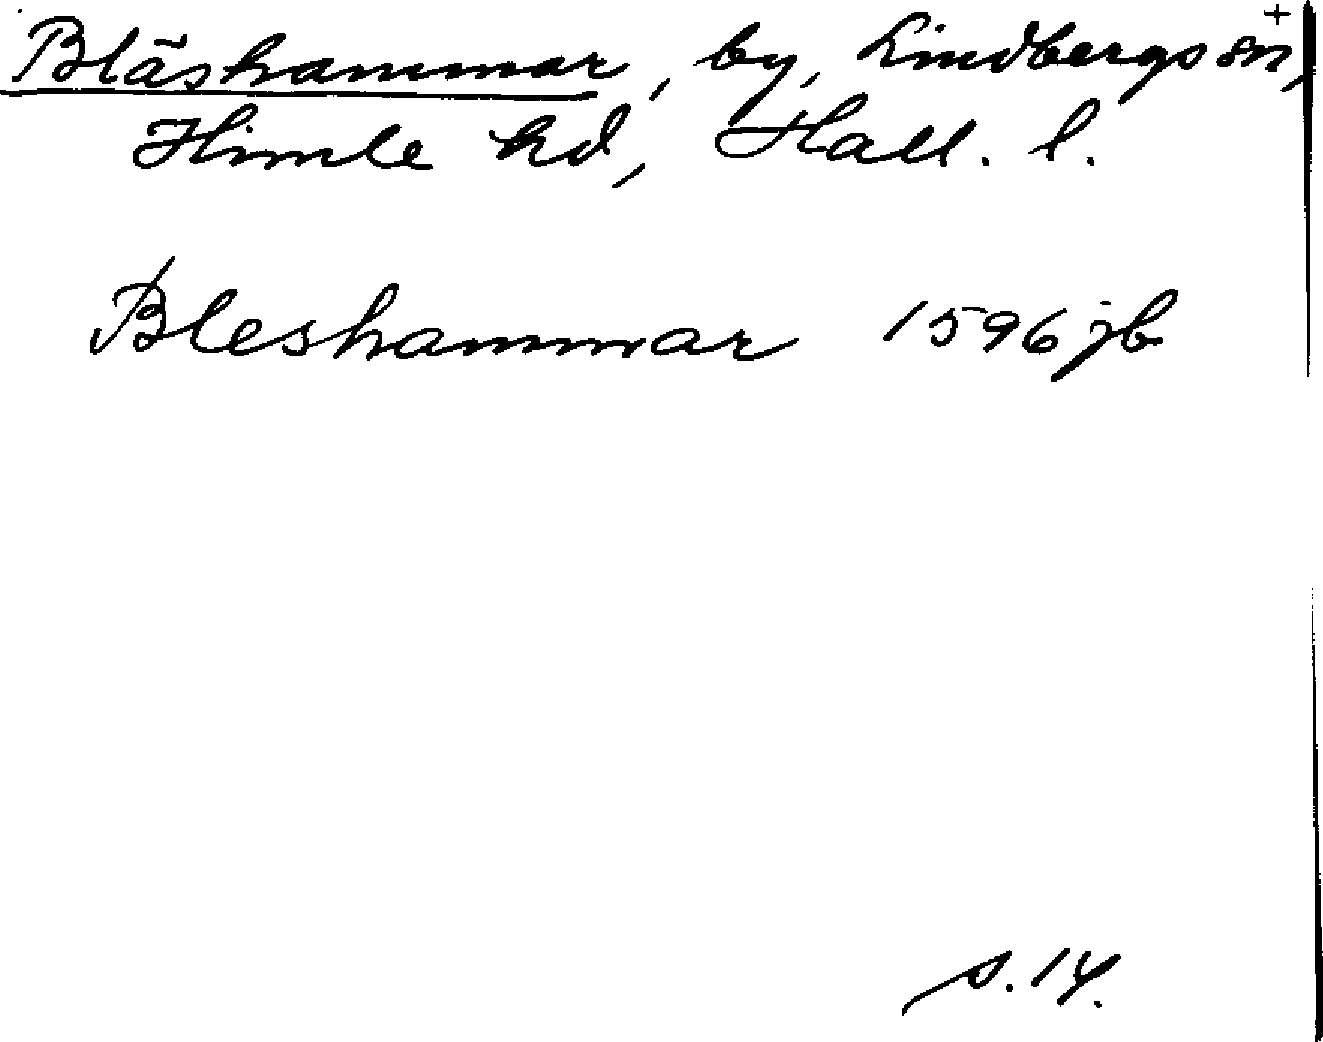 Bläshammar, by, Lindbergs sn, +
Himle hd, Hall. l.
Bleshammar 1596 jb
s. 14.